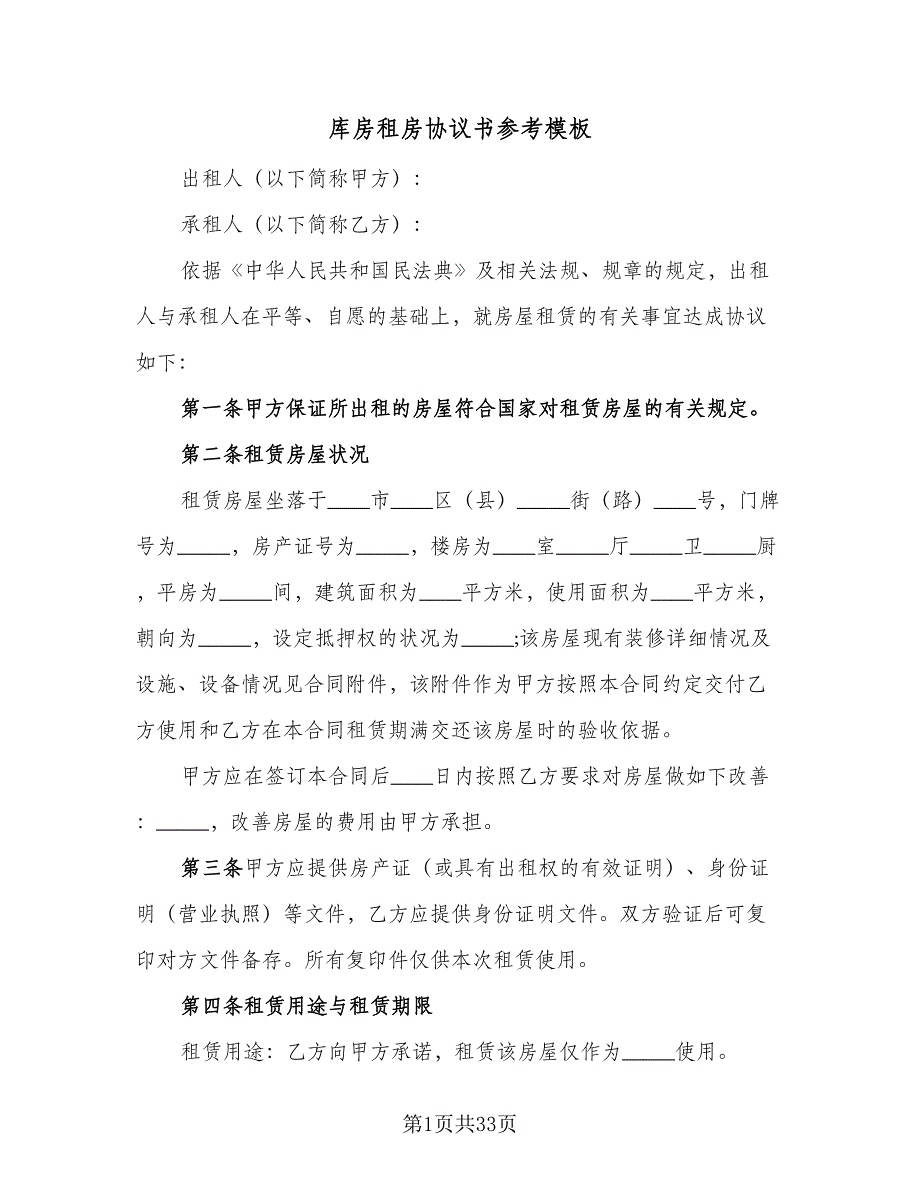 库房租房协议书参考模板
出租人（以下简称甲方）：
承租人（以下简称乙方）：
依据《中华人民共和国民法典》及相关法规、规章的规定，出租
人与承租人在平等、自愿的基础上，就房屋租赁的有关事宜达成协议
如下：
第一条甲方保证所出租的房屋符合国家对租赁房屋的有关规定。
第二条租赁房屋状况
租赁房屋坐落于____市____区（县）_____街（路）____号，门牌
号为_____，房产证号为_____，楼房为____室_____厅_____卫_____厨
，平房为_____间，建筑面积为____平方米，使用面积为____平方米，
朝向为_____，设定抵押权的状况为_____;该房屋现有装修详细情况及
设施、设备情况见合同附件，该附件作为甲方按照本合同约定交付乙
方使用和乙方在本合同租赁期满交还该房屋时的验收依据。
甲方应在签订本合同后____日内按照乙方要求对房屋做如下改善
：_____，改善房屋的费用由甲方承担。
第三条甲方应提供房产证（或具有出租权的有效证明）、身份证
明（营业执照）等文件，乙方应提供身份证明文件。双方验证后可复
印对方文件备存。所有复印件仅供本次租赁使用。
第四条租赁用途与租赁期限
租赁用途：乙方向甲方承诺，租赁该房屋仅作为_____使用。
第1页共33页